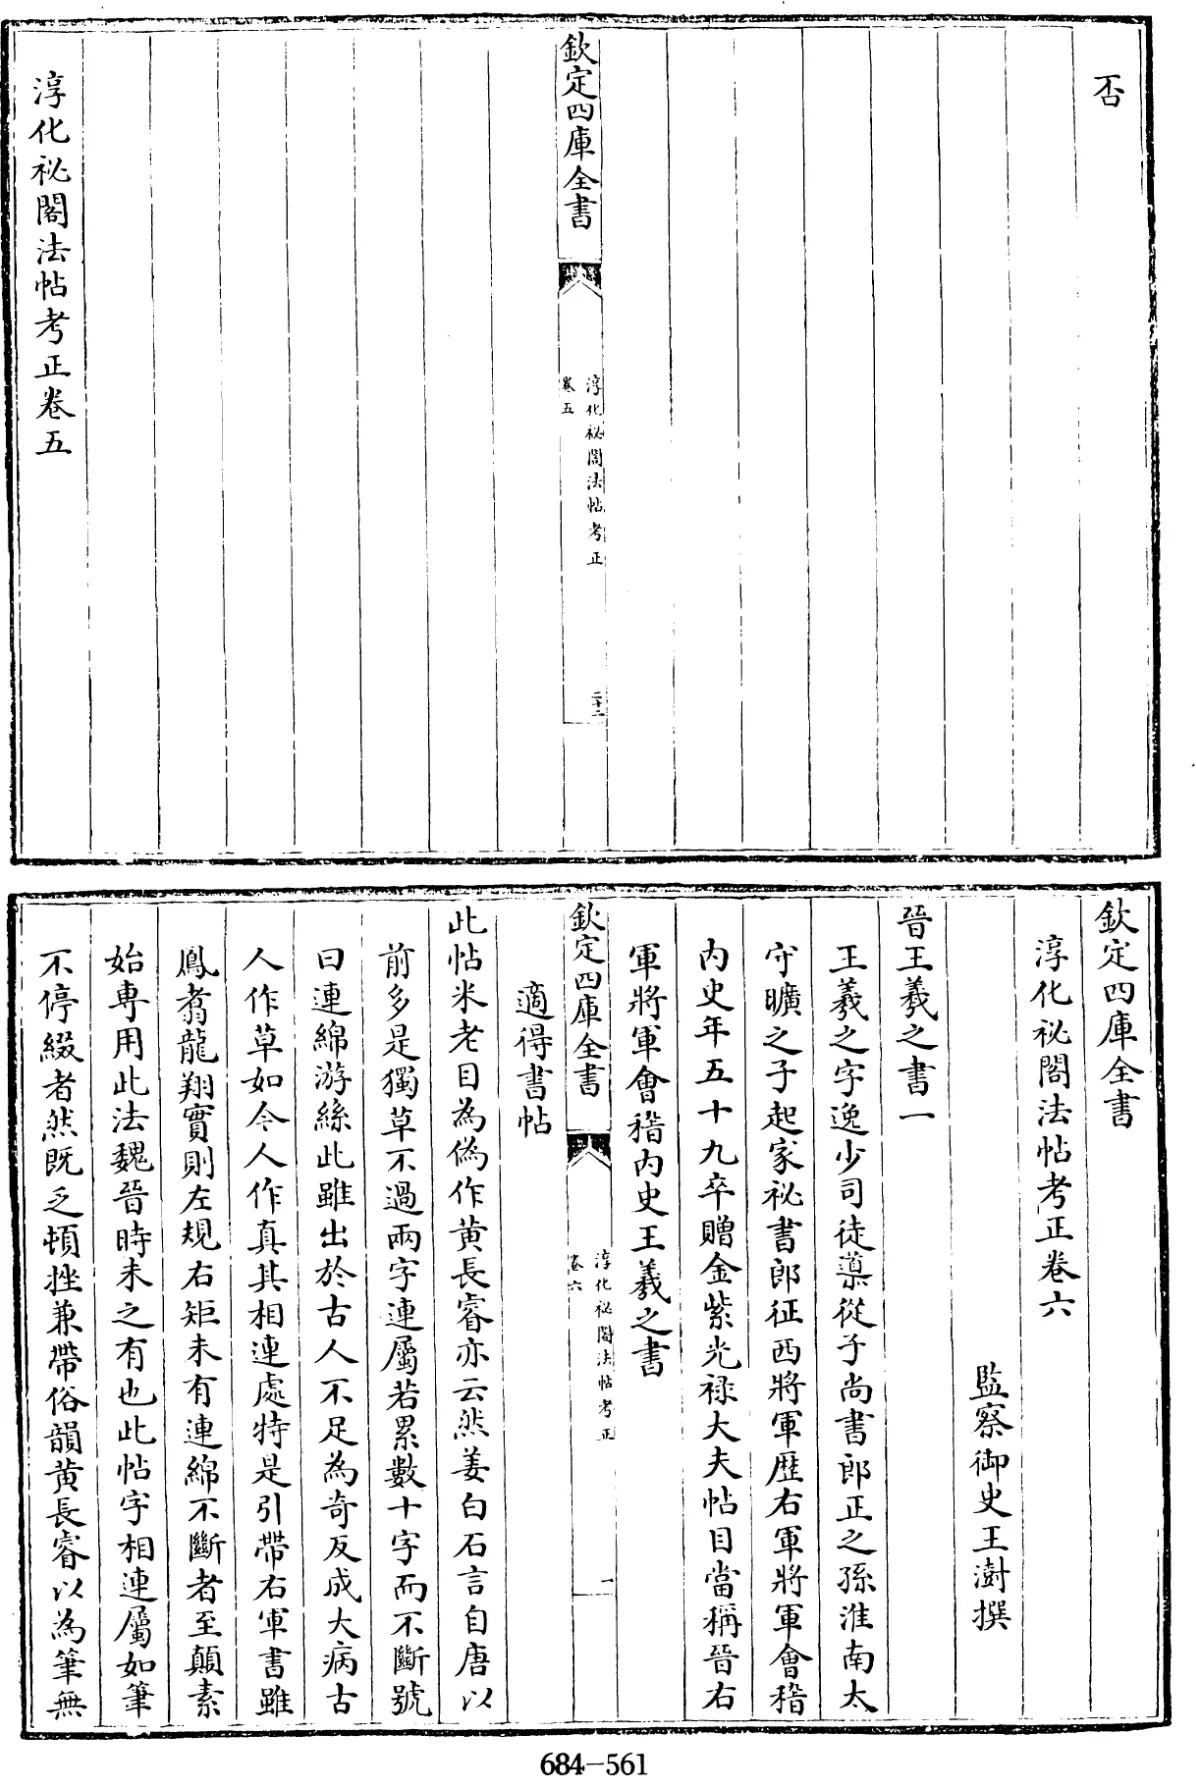 否
欽定四庫全書
淳化秘閣法帖考正
卷五
二十二
淳化秘閣法帖考正卷五
欽定四庫全書
淳化秘閣法帖考正卷六
監察御史王澍撰
晉王羲之書一
王羲之字逸少司徒導從子尚書郎正之孫淮南太
守曠之子起家秘書郎征西將軍歴右軍將軍會稽
内史年五十九卒贈金紫光禄大夫帖目當稱晉右
軍將軍會稽内史王羲之書
欽定四庫全書
淳化秘閣法帖考正
卷六
一
適得書帖
此帖米老目為偽作黄長睿亦云然姜白石言自唐以
前多是獨草不過兩字連屬若累數十字而不斷號
曰連綿游絲此雖出於古人不足為奇反成大病古
人作草如今人作真其相連處特是引帶右軍書雖
鳳翥龍翔實則左規右矩未有連綿不斷者至顛素
始專用此法魏晉時未之有也此帖字相連屬如筆
不停綴者然既乏頓挫兼帶俗韻黄長睿以為筆無
684-561